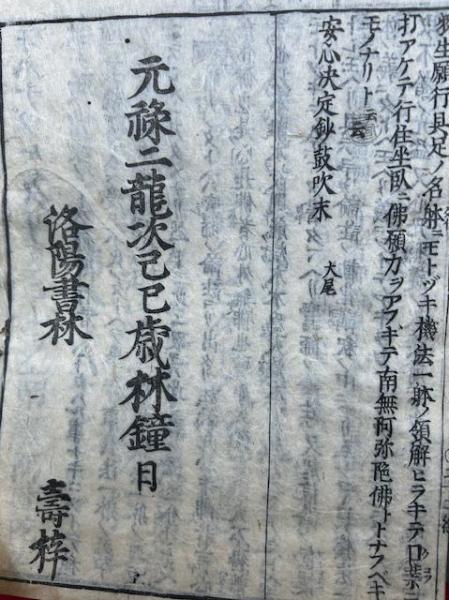 衆生願行具足ノ名躰ニモトヅキ機法一躰ノ領解ヒラキテ口業ニ
打アケテ行住坐臥ニ佛願力ヲアフギテ南無阿弥陀佛トトナフベキ
モノナリト云云
安心決定鈔鼓吹末 大尾
元祿二龍次己巳歳林鐘日
洛陽書林 壽梓